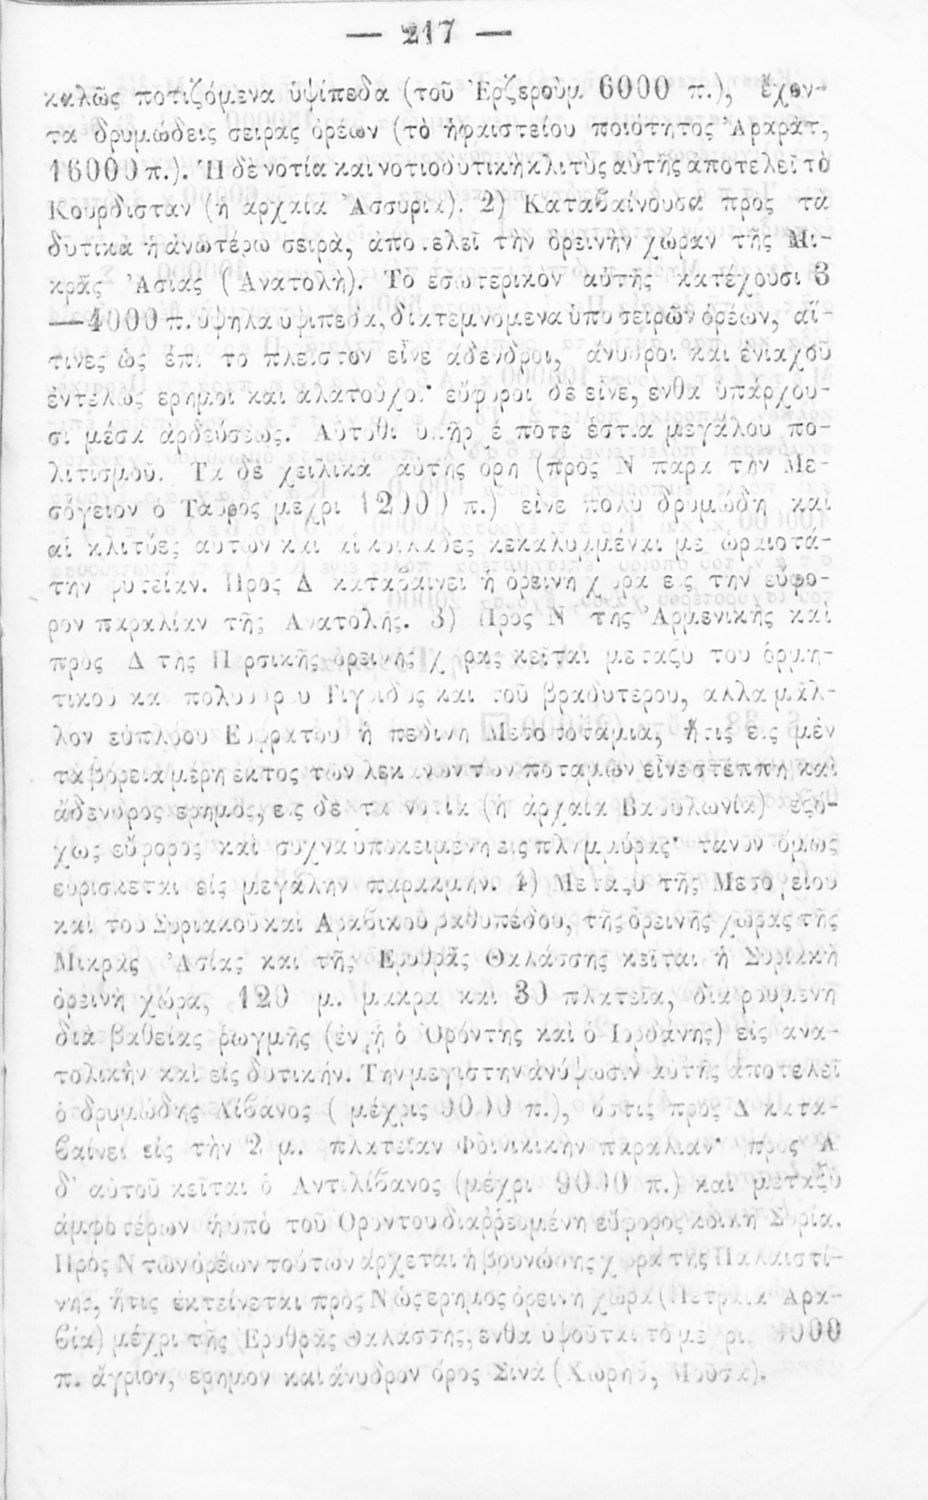 — 217 —
καλῶς ποτιζόμενα ὑψίπεδα (τοῦ Ἐρζεροὺμ 6000 π.), ἔχον-
τα δρυμώδεις σειρὰς ὀρέων (τὸ ἡφαιστείου ποιότητος Ἀραράτ,
16000 π.). Ἡ δὲ νοτία καὶ νοτιοδυτικὴ κλιτὺς αὐτῆς ἀποτελεῖ τὸ
Κουρδιστὰν (ἡ ἀρχαία Ἀσσυρία). 2) Καταβαίνουσα πρὸς τὰ
δυτικὰ ἡ ἀνωτέρω σειρά, ἀποτελεῖ τὴν ὀρεινὴν χώραν τῆς Μι-
κρᾶς Ἀσίας (Ἀνατολή). Τὸ ἐσωτερικὸν αὐτῆς κατέχουσι 3
—4000 π. ὑψηλὰ ὑψίπεδα, διατεμνόμενα ὑπὸ σειρῶν ὀρέων, αἵ-
τινες ὡς ἐπὶ τὸ πλεῖστον εἶνε ἄδενδροι, ἄνυδροι καὶ ἐνιαχοῦ
ἐντελῶς ἔρημοι καὶ ἁλατοῦχοι· εὔφοροι δὲ εἶνε, ἔνθα ὑπάρχου-
σι μέσα ἀρδεύσεως. Αὐτόθι ὑπῆρξέ ποτε ἑστία μεγάλου πο-
λιτισμοῦ. Τὰ δὲ χειλικὰ αὐτῆς ὄρη (πρὸς Ν παρὰ τὴν Με-
σόγειον ὁ Ταῦρος μέχρι 12000 π.) εἶνε πολὺ δρυμώδη καὶ
αἱ κλιτύες αὐτῶν καὶ αἱ κοιλάδες κεκαλυμμέναι μὲ ὡραιοτά-
την φυτείαν. Πρὸς Δ καταβαίνει ἡ ὀρεινὴ χώρα εἰς τὴν εὔφο-
ρον παραλίαν τῆς Ἀνατολῆς. 3) Πρὸς Ν τῆς Ἀρμενικῆς καὶ
πρὸς Δ τῆς Περσικῆς ὀρεινῆς χώρας κεῖται μεταξὺ τοῦ ὁρμη-
τικοῦ καὶ πολυύδρου Τίγριδος καὶ τοῦ βραδυτέρου, ἀλλὰ μᾶλ-
λον εὐπλόου Εὐφράτου ἡ πεδινὴ Μεσοποταμία, ἥτις εἰς μὲν
τὰ βόρεια μέρη ἐκτὸς τῶν λεκανῶν τῶν ποταμῶν εἶνε στέππη καὶ
ἄδενδρος ἔρημος, εἰς δὲ τὰ νότια (ἡ ἀρχαία Βαβυλωνία) ἐξό-
χως εὔφορος καὶ συχνὰ ὑποκειμένη εἰς πλημμύρας· τανῦν ὅμως
εὑρίσκεται εἰς μεγάλην παρακμήν. 4) Μεταξὺ τῆς Μεσογείου
καὶ τοῦ Συριακοῦ καὶ Ἀραβικοῦ βαθυπέδου, τῆς ὀρεινῆς χώρας τῆς
Μικρᾶς Ἀσίας καὶ τῆς Ἐρυθρᾶς Θαλάσσης κεῖται ἡ Συριακὴ
ὀρεινὴ χώρα, 120 μ. μακρὰ καὶ 30 πλατεῖα, διαιρουμένη
διὰ βαθείας ῥωγμῆς (ἐν ᾗ ὁ Ὀρόντης καὶ ὁ Ἰορδάνης) εἰς ἀνα-
τολικὴν καὶ εἰς δυτικήν. Τὴν μεγίστην ἀνύψωσιν αὐτῆς ἀποτελεῖ
ὁ δρυμώδης Λίβανος (μέχρις 9000 π.), ὅστις πρὸς Δ κατα-
βαίνει εἰς τὴν 2 μ. πλατεῖαν Φοινικικὴν παραλίαν· πρὸς Α
δ' αὐτοῦ κεῖται ὁ Ἀντιλίβανος (μέχρι 9000 π.) καὶ μεταξὺ
ἀμφοτέρων ἡ ὑπὸ τοῦ Ὀρόντου διαρρεομένη εὔφορος κοίλη Συρία.
Πρὸς Ν τῶν ὀρέων τούτων ἄρχεται ἡ βουνώδης χώρα τῆς Παλαιστί-
νης, ἥτις ἐκτείνεται πρὸς Ν ὡς ἔρημος ὀρεινὴ χώρα (Πετραία Ἀρα-
βία) μέχρι τῆς Ἐρυθρᾶς Θαλάσσης, ἔνθα ὑψοῦται τὸ μέχρι 9000
π. ἄγριον, ἔρημον καὶ ἄνυδρον ὄρος Σινᾶ (Χωρήβ, Μοῦσα).